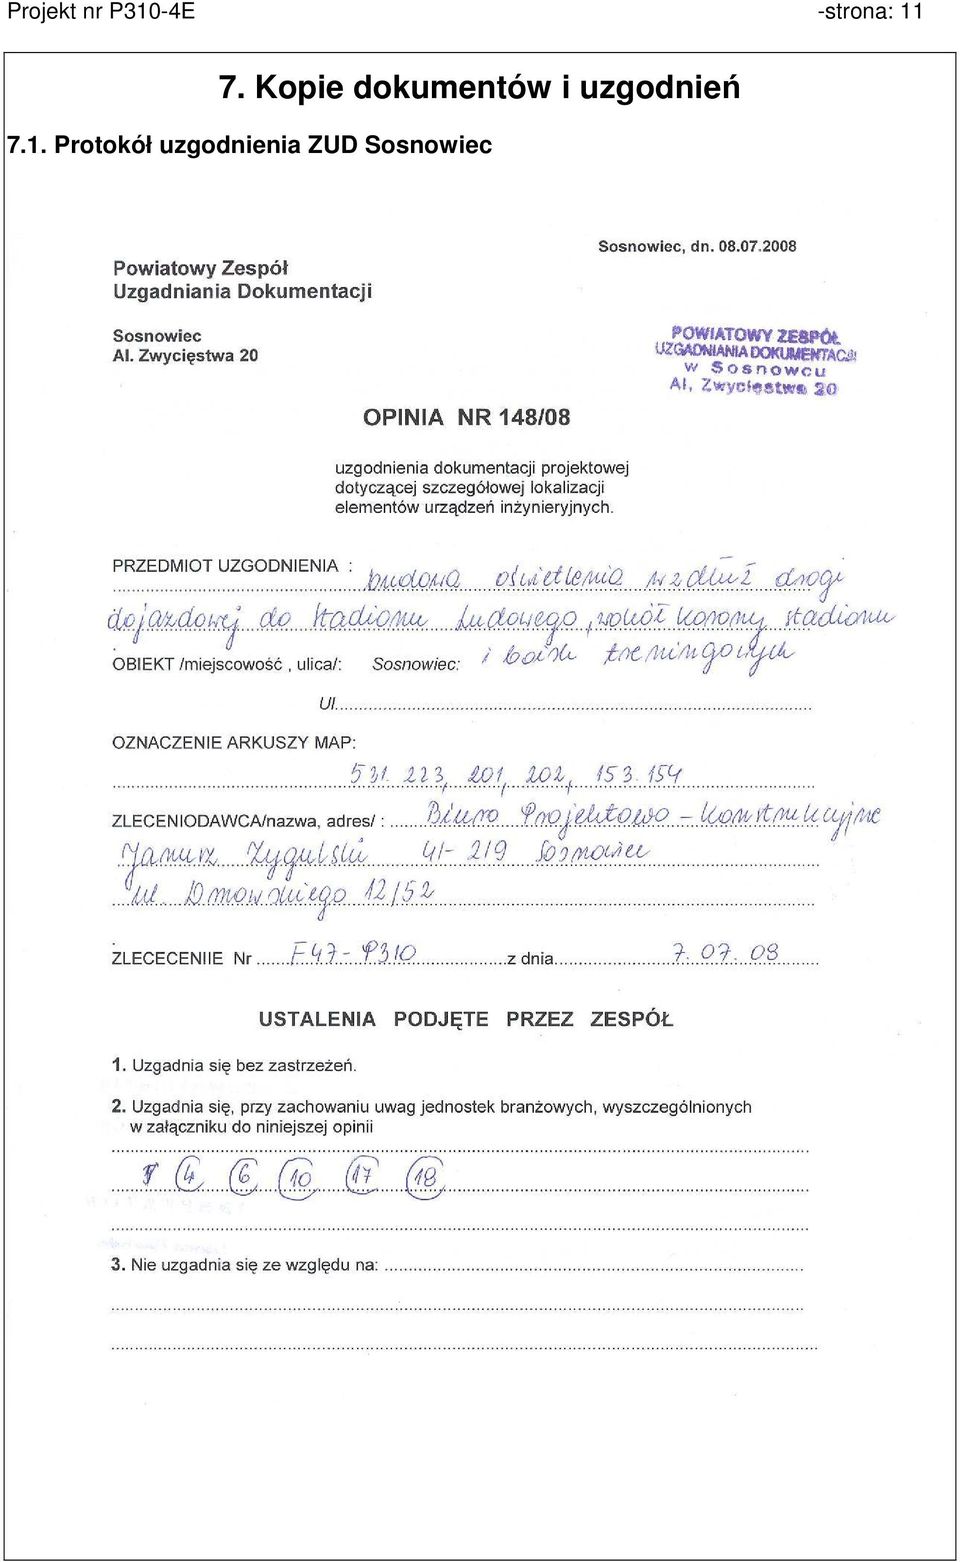 Projekt nr P310-4E -strona: 11
7. Kopie dokumentów i uzgodnień
7.1. Protokół uzgodnienia ZUD Sosnowiec
Sosnowiec, dn. 08.07.2008
Powiatowy Zespół
Uzgadniania Dokumentacji
Sosnowiec
Al. Zwycięstwa 20
POWIATOWY ZESPÓŁ
UZGADNIANIA DOKUMENTACJI
w Sosnowcu
Al. Zwycięstwa 20
OPINIA NR 148/08
uzgodnienia dokumentacji projektowej
dotyczącej szczegółowej lokalizacji
elementów urządzeń inżynieryjnych.
PRZEDMIOT UZGODNIENIA : budowa oświetlenia wzdłuż drogi
dojazdowej do stadionu Ludowego, wokół korony stadionu
OBIEKT /miejscowość , ulica/: Sosnowiec: i boisk treningowych
Ul.
OZNACZENIE ARKUSZY MAP:
531. 223, 201, 202, 153. 154
ZLECENIODAWCA/nazwa, adres/ : Biuro Projektowo - Konstrukcyjne
Janusz Żygulski 41-219 Sosnowiec
ul. Dmowskiego 12/52
ZLECECENIIE Nr F47- P310 z dnia 7. 07. 08
USTALENIA PODJĘTE PRZEZ ZESPÓŁ
1. Uzgadnia się bez zastrzeżeń.
2. Uzgadnia się, przy zachowaniu uwag jednostek branżowych, wyszczególnionych
w załączniku do niniejszej opinii
4 6 10 17 18
3. Nie uzgadnia się ze względu na: